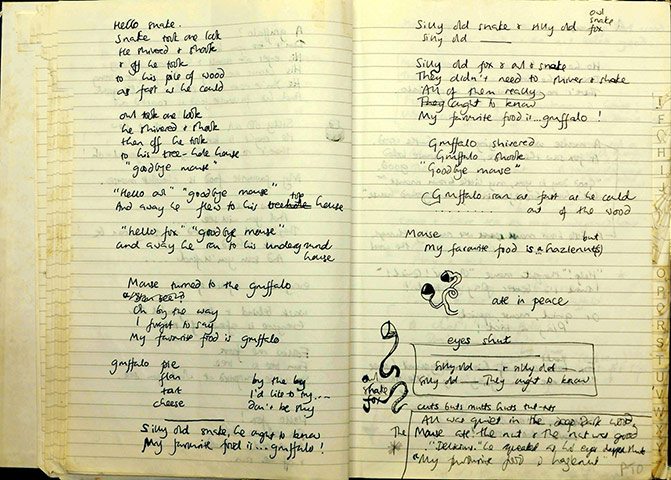 Hello snake.
Snake took one look
He shivered & shook
& off he took
to his pile of wood
as fast as he could
owl took one look
he shivered & shook
then off he took
to his tree-hole house
"goodbye mouse"
"Hello owl" "goodbye mouse"
And away he flew to his treehole top house
"hello fox" "goodbye mouse"
and away he ran to his underground
house
Mouse turned to the gruffalo
Oh by the way
I forgot to say
My favourite food is gruffalo
gruffalo pie
flan by the by
tart I'd like to try...
cheese don't be shy
Silly old snake, he ought to know
My favourite food is...gruffalo!
Silly old snake & silly old fox
owl
snake
silly old
Silly old fox & owl & snake
They didn't need to shiver & shake
All of them really
They ought to know
My favourite food is...gruffalo!
Gruffalo shivered
Gruffalo shook
"Goodbye mouse"
Gruffalo ran as fast as he could
......... out of the wood
Mouse
but
My favourite food is a hazelnut(s)
ate in peace
eyes shut
owl
snake
fox
Silly old __ & silly old __
Silly old __ They ought to know
cuts buts mutts huts tut-tuts
All was quiet in the deep dark wood
The Mouse ate the nut & the nut was good
"Delicious" he squeaked as his eyes
"My favourite food is hazelnut"
PTO